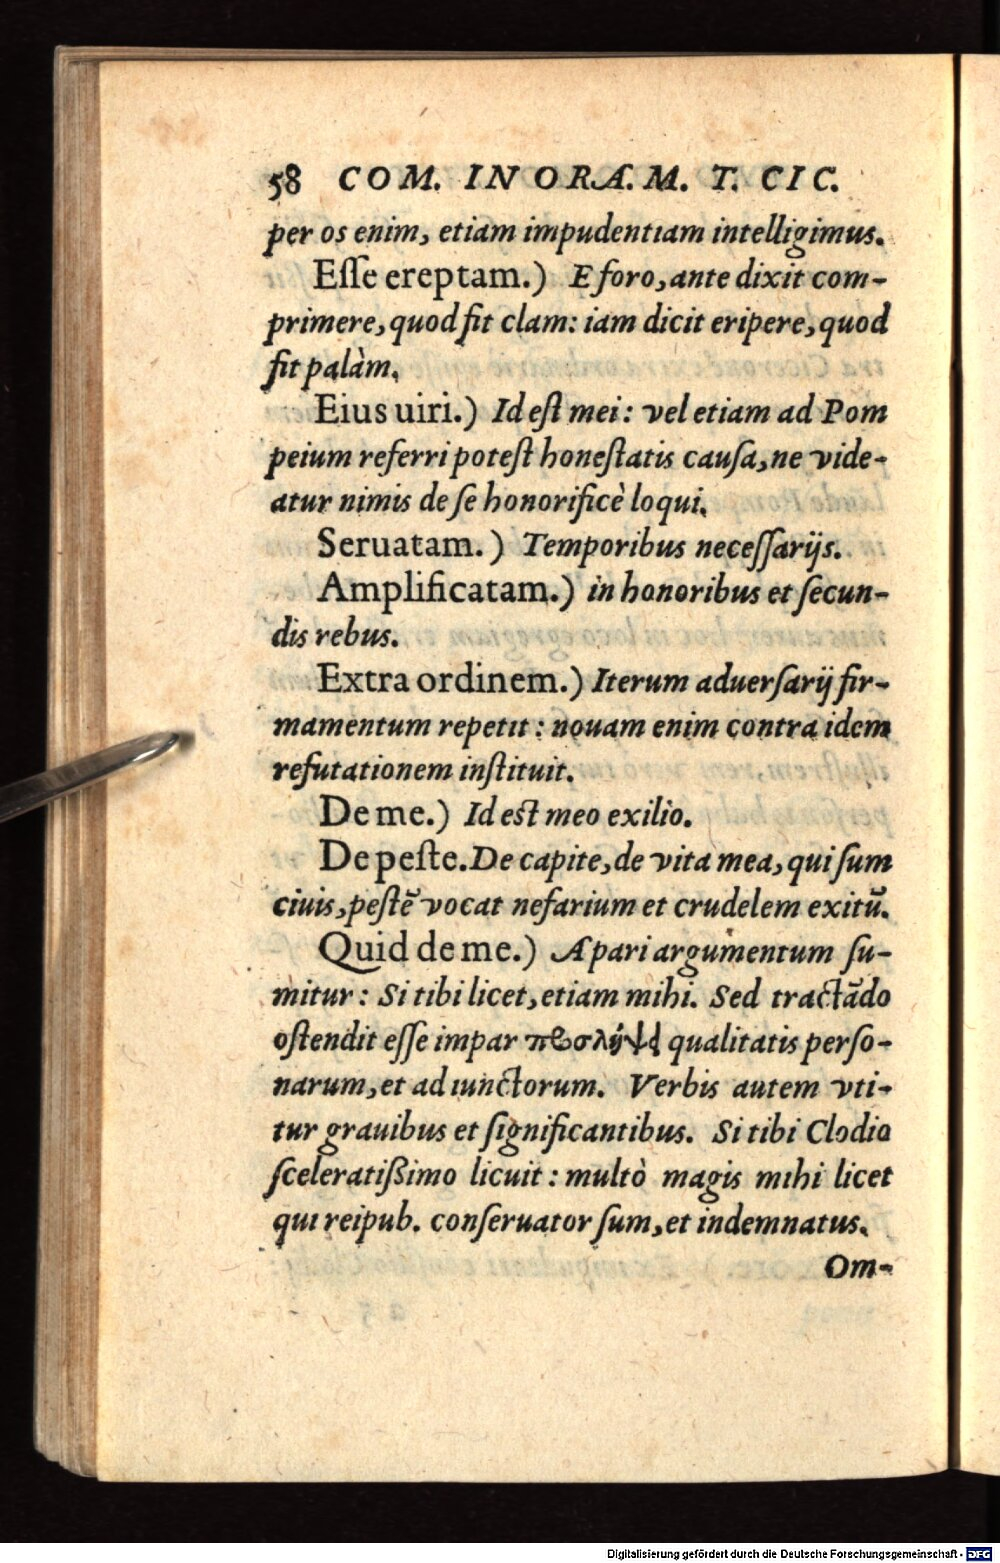 58 COM. IN ORA. M. T. CIC.
per os enim, etiam impudentiam intelligimus.
Eſſe ereptam.) E foro, ante dixit com-
primere, quod fit clam: iam dicit eripere, quod
fit palàm.
Eius uiri.) Id eſt mei: vel etiam ad Pom
peium referri poteſt honeſtatis cauſa, ne vide-
atur nimis de ſe honorificè loqui.
Seruatam.) Temporibus neceſſarijs.
Amplificatam.) in honoribus et ſecun-
dis rebus.
Extra ordinem.) Iterum aduerſarij fir-
mamentum repetit: nouam enim contra idem
refutationem inſtituit.
De me.) Id eſt meo exilio.
De peſte. De capite, de vita mea, qui ſum
ciuis, peſtē vocat nefarium et crudelem exitū.
Quid de me.) A pari argumentum ſu-
mitur: Si tibi licet, etiam mihi. Sed tractādo
oſtendit eſſe impar qualitatis perſo-
narum, et adiunctorum. Verbis autem vti-
tur grauibus et ſignificantibus. Si tibi Clodio
ſceleratiſſimo licuit: multò magis mihi licet
qui reipub. conſeruator ſum, et indemnatus.
Om-
Digitalisierung gefördert durch die Deutsche Forschungsgemeinschaft - DFG